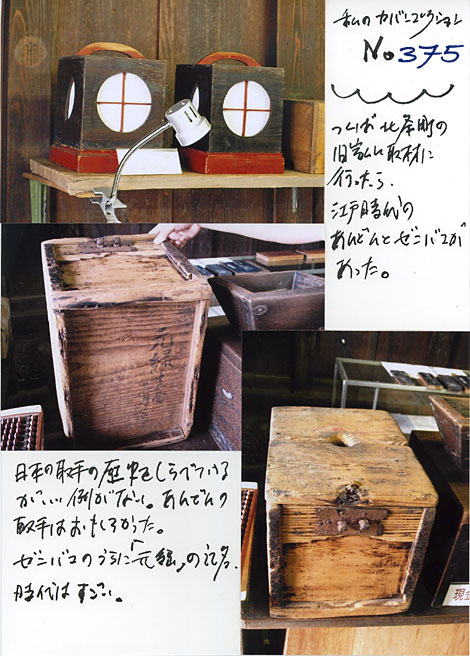 私のカバンコレクション
No 375
つくば北条町の
旧家へ取材に
行ったら、
江戸時代の
あんどんとゼニバコが
あった。
元禄
日本の取手の歴史をしらべている
が、いい例がない。あんどんの
取手はおもしろかった。
ゼニバコのうらに「元禄」の記名。
時代はすごい。
現